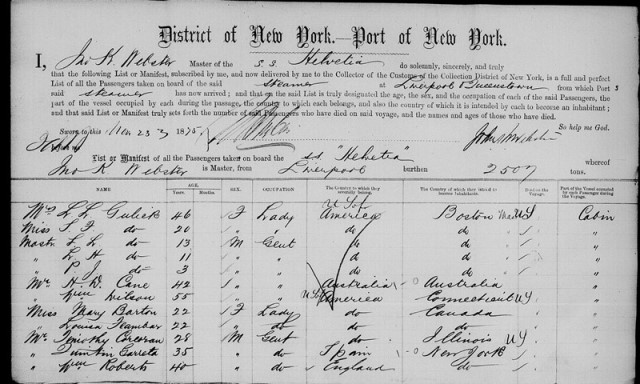 District of New York.—Port of New York.
I, Jno K. Webster Master of the S.S. Helvetia do solemnly, sincerely, and truly
that the following List or Manifest, subscribed by me, and now delivered by me to the Collector of the Customs of the Collection District of New York, is a full and perfect
List of all the Passengers taken on board of the said steamer at Liverpool Queenstown from which Port
said steamer has now arrived; and that on the said List is truly designated the age, the sex, and the occupation of each of the said Passengers, the
part of the vessel occupied by each during the passage, the country to which each belongs, and also the country of which it is intended by each to become an inhabitant;
and that said List or Manifest truly sets forth the number of the said Passengers who have died on said voyage, and the names and ages of those who died.
Sworn to this Nov 23 1875 So help me God.
List or Manifest of all the Passengers taken on board the SS "Helvetia" whereof
Jno K Webster is Master, from Liverpool burthen 2507 tons.
NAMES AGE. Years. Months. SEX. OCCUPATION The Country to which they severally belong. The Country of which they intend to become Inhabitants. Died on the Voyage. Part of the Vessel occupied by each during the Voyage.
Mrs L. L. Gulick 46 F Lady U S of America Boston Mass US Cabin
Miss F. F do 20 " " do do "
Mast. L. L. do 13 M Gent do do "
" L. H. do 11 " " do do "
" P. J. do 3 " " do do "
Mr H. D. Cane 42 " " Australia Australia "
" Wm Wilson 55 " " U S of America Connecticut US "
Miss Mary Barton 22 F Lady do Canada "
" Louisa 22 " " do do "
Mr Timothy Corcoran 28 M Gent do Illinois US "
" Garreta 35 " do Spain New York "
" Wm Roberts 40 " do England do "